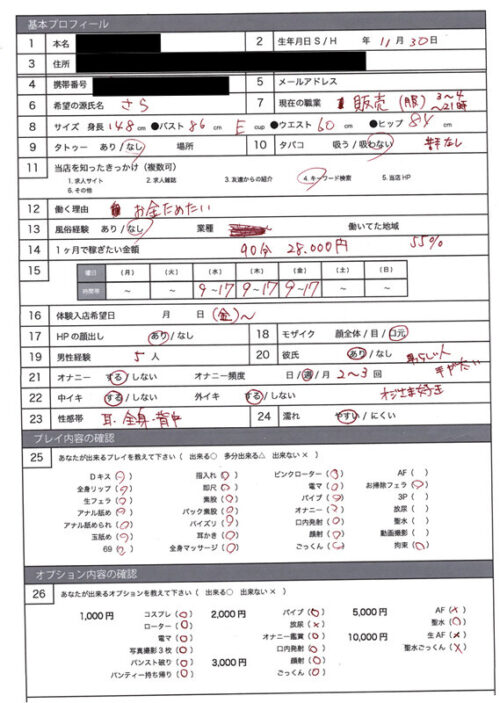 基本プロフィール
1 本名 2 生年月日 S / H 年 11 月 30 日
3 住所
4 携帯番号 5 メールアドレス
6 希望の源氏名 さら 7 現在の職業 販売(服) 3~4 ~21時
8 サイズ 身長 148 cm ●バスト 86 cm E cup ●ウエスト 60 cm ●ヒップ 84 cm
9 タトゥー あり / なし 場所 10 タバコ 吸う / 吸わない なし
11 当店を知ったきっかけ(複数可)
1. 求人サイト 2. 求人雑誌 3. 友達からの紹介 4. キーワード検索 5. 当店HP
6. その他
12 働く理由 お金ためたい
13 風俗経験 あり / なし 業種 働いてた地域
14 1ヶ月で稼ぎたい金額 90分 28,000円 55%
15 曜日 (月) (火) (水) (木) (金) (土) (日)
時間帯 ~ ~ 9~17 9~17 9~17 ~ ~
16 体験入店希望日 月 日 (金)~
17 HPの顔出し あり / なし 18 モザイク 顔全体 / 目 / 口元
19 男性経験 5 人 20 彼氏 あり / なし
21 オナニー する / しない オナニー頻度 日 / 週 / 月 2~3 回
22 中イキ する / しない 外イキ する / しない
23 性感帯 耳・全身・背中 24 濡れ やすい / にくい
プレイ内容の確認
25 あなたが出来るプレイを教えて下さい( 出来る○ 多分出来る△ 出来ない× )
Dキス(○) 指入れ(○) ピンクローター(○) AF( )
全身リップ(○) 即尺(○) 電マ(○) お掃除フェラ(○)
生フェラ(○) 素股(○) バイブ(○) 3P( )
アナル舐め(○) バック素股(○) オナニー(○) 放尿( )
アナル舐められ(○) パイズリ(○) 口内発射(○) 聖水( )
玉舐め(○) 耳かき(○) 顔射(○) 動画撮影( )
69(○) 全身マッサージ(○) ごっくん(○) 拘束(○)
オプション内容の確認
26 あなたが出来るオプションを教えて下さい( 出来る○ 出来ない× )
1,000円 コスプレ(○) 2,000円 バイブ(○) 5,000円 AF(×)
ローター(○) 放尿(×) 聖水(○)
電マ(○) オナニー鑑賞(○) 10,000円 生AF(×)
写真撮影3枚(○) 口内発射(○) 聖水ごっくん(×)
パンスト破り(○) 3,000円 顔射(○)
パンティー持ち帰り(○) ごっくん(○)